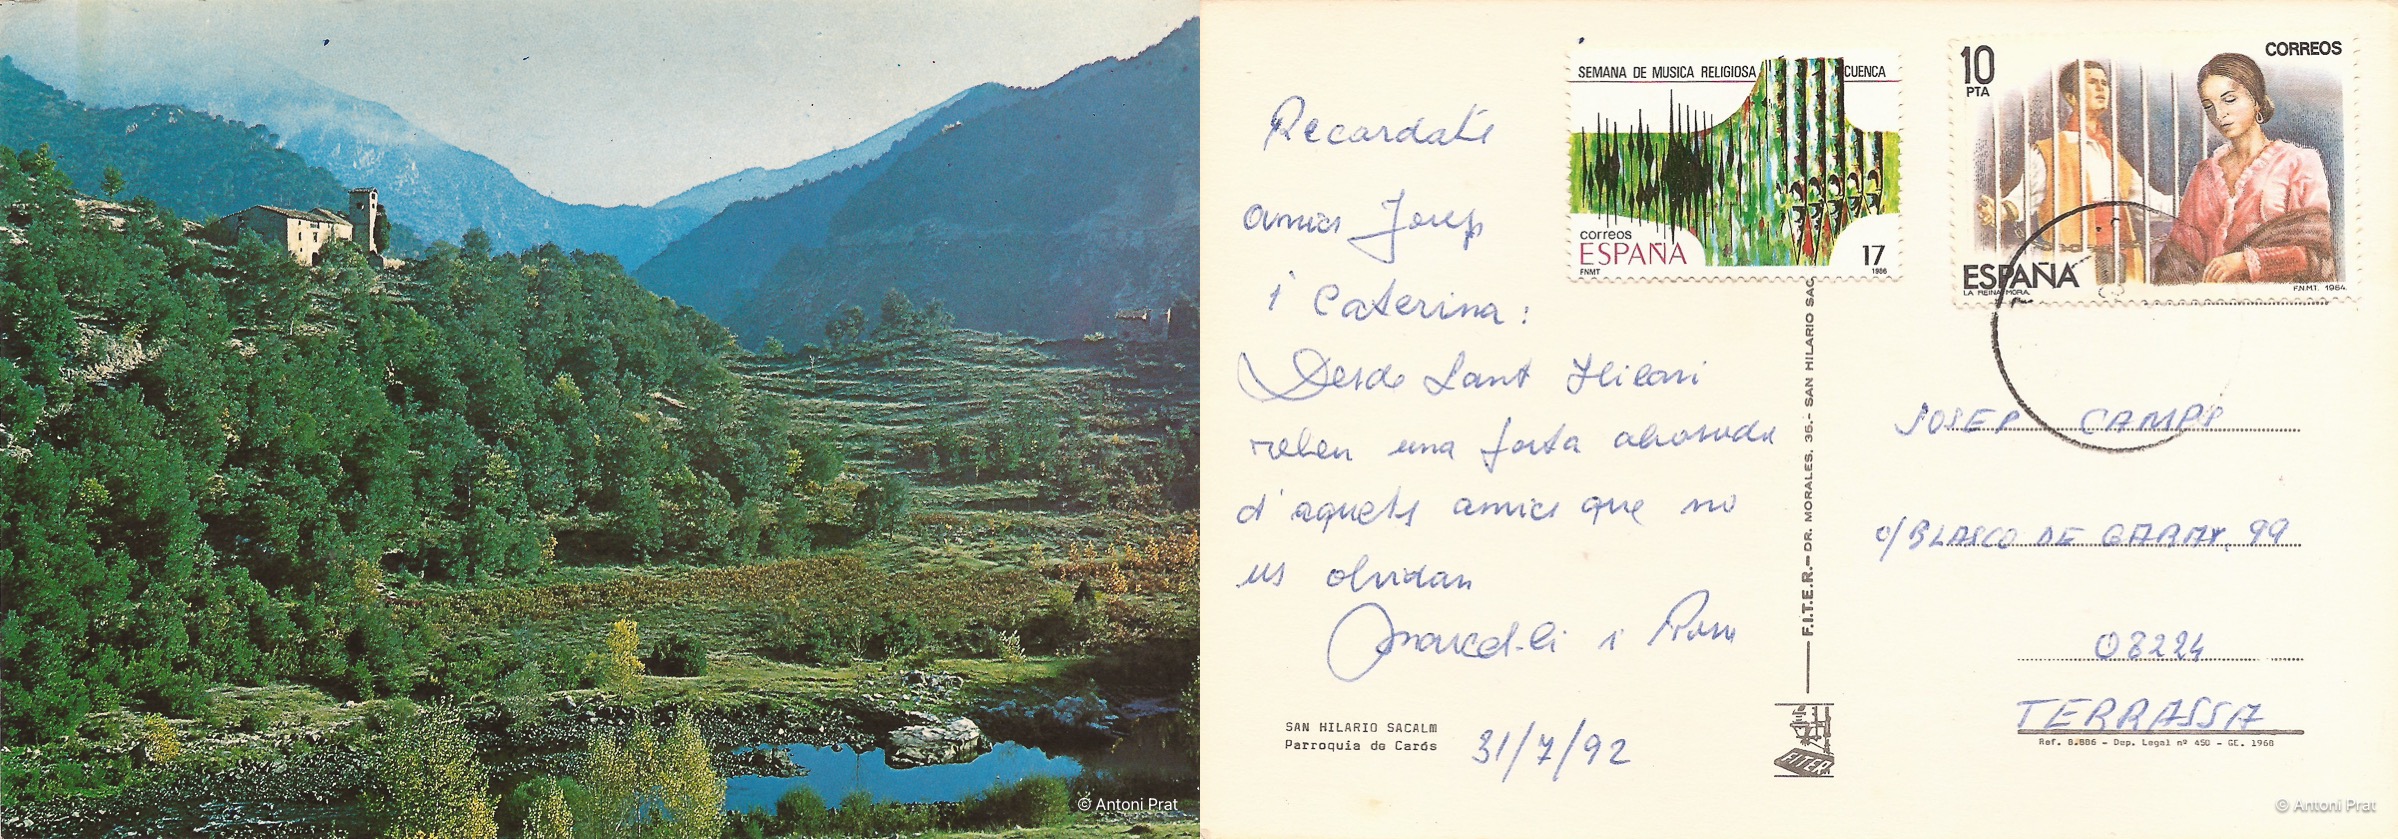 © Antoni Prat
SEMANA DE MUSICA RELIGIOSA CUENCA
correos
ESPAÑA 17
FNMT 1986
10 CORREOS
PTA
ESPAÑA
LA REINA MORA. F.N.M.T. 1984.
Recardats
amics Josep
i Caterina:
Desde Sant Hilari
reben una forta abraçada
d'aquets amics que no
us olvidan
Marcel·li i Rosa
31/7/92
SAN HILARIO SACALM
Parroquia de Carós
F.I.T.E.R.- DR. MORALES, 36.- SAN HILARIO SAC
FITER
JOSEP CAMPS
c/ BLASCO DE GARAY, 99
08224
TERRASSA
Ref. 8.886 - Dep. Legal nº 450 - GE. 1968
© Antoni Prat